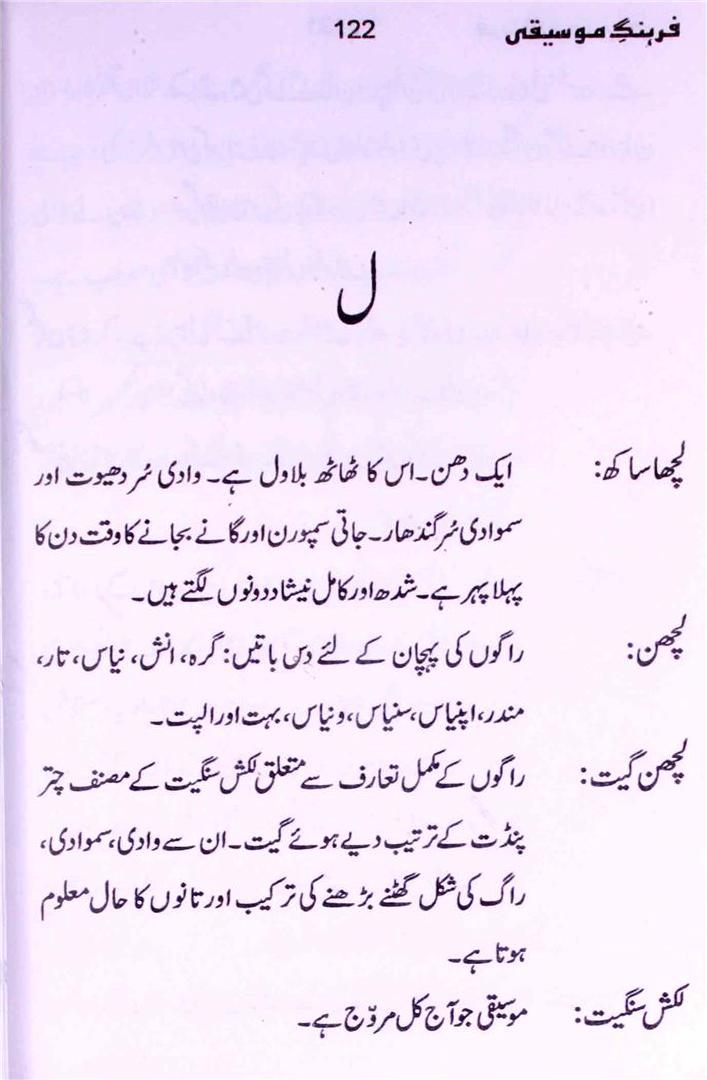 فرہنگِ موسیقی 122
ل
لچھاساکھ: ایک دھن۔ اس کا ٹھاٹھ بلاول ہے۔ وادی سُر دھیوت اور
سموادی سُر گندھار۔ جاتی سمپورن اور گانے بجانے کا وقت دن کا
پہلا پہر ہے۔ شدھ اور کامل نیشاد دونوں لگتے ہیں۔
لچھن: راگوں کی پہچان کے لئے دس باتیں: گرہ، انش، نیاس، تار،
مندر، اپنیاس، سنیاس، ونیاس، بہت اور الپت۔
لچھن گیت: راگوں کے مکمل تعارف سے متعلق لکش سنگیت کے مصنف چتر
پنڈت کے ترتیب دیے ہوئے گیت۔ ان سے وادی، سموادی،
راگ کی شکل گھٹنے بڑھنے کی ترکیب اور تانوں کا حال معلوم
ہوتا ہے۔
لکش سنگیت: موسیقی جو آج کل مروّج ہے۔